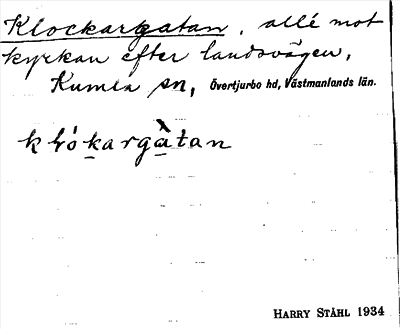 Klockargatan, allé mot
kyrkan efter landsvägen,
Kumla sn, Övertjurbo hd, Västmanlands län.
klókargàtan
HARRY STÅHL 1934